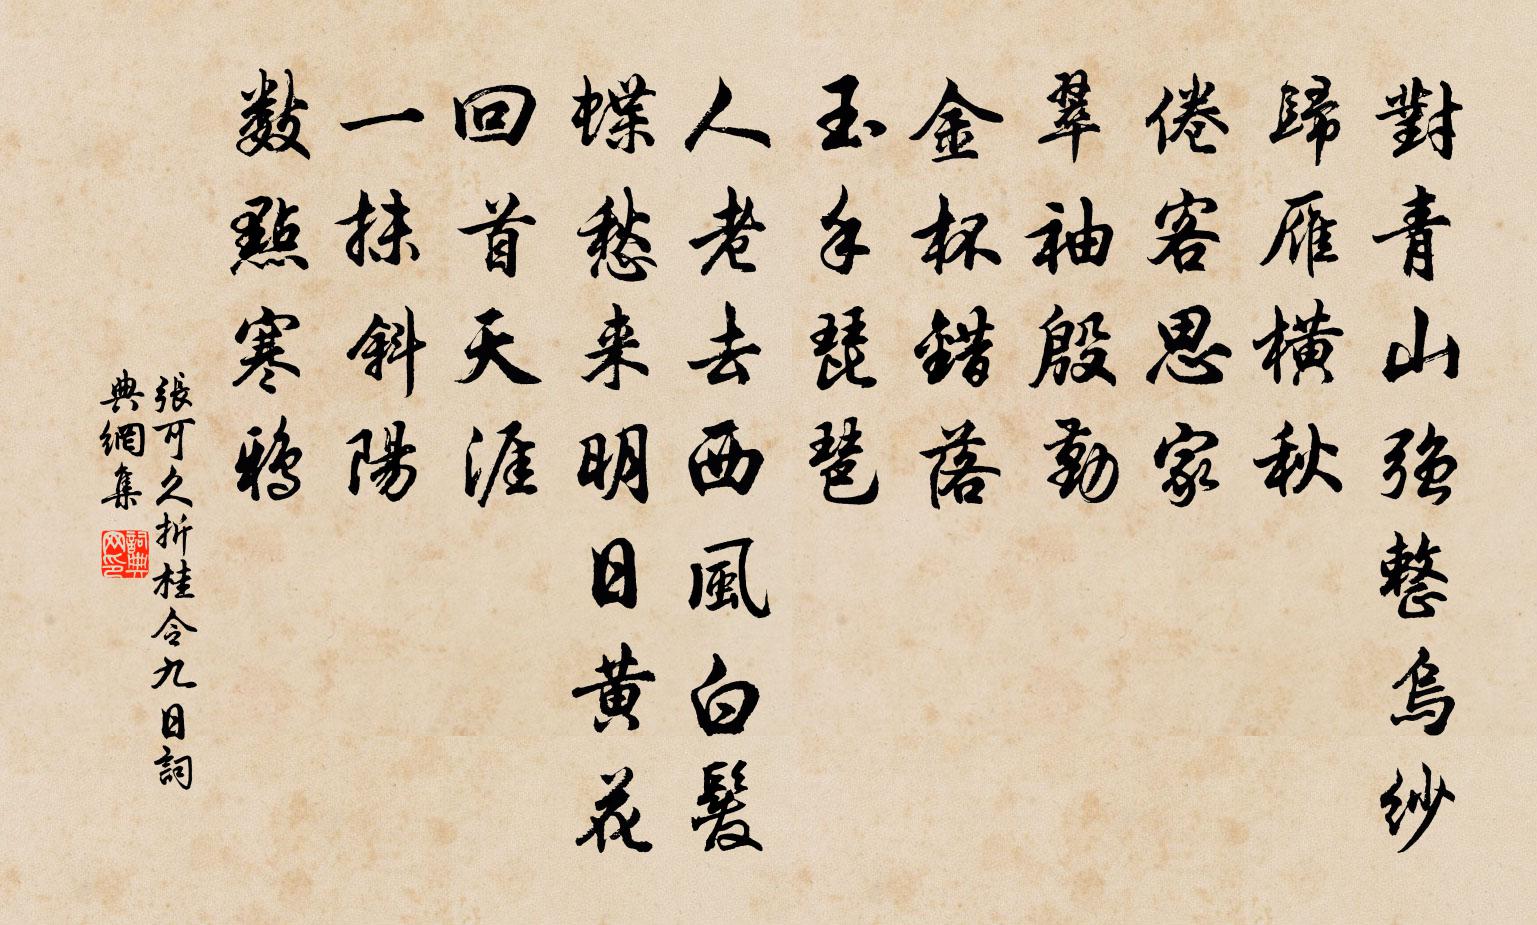 對青山強整烏紗
歸雁橫秋
倦客思家
翠袖殷勤
金杯錯落
玉手琵琶
人老去西風白髮
蝶愁来明日黃花
回首天涯
一抹斜陽
数點寒鴉
張可久折桂令九日詞
典網集
詞典网印